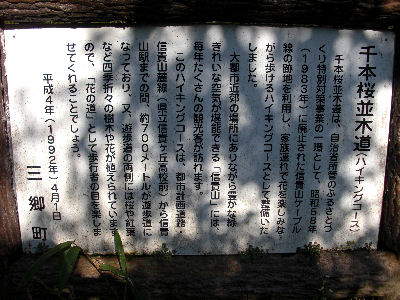 千本桜並木道(ハイキングコース)
千本桜並木道は、自治省所管のふるさとづ
くり特別対策事業の一環として、昭和58年
(1983年)に廃止された信貴山ケーブル
線の跡地を利用し、家族連れで花を楽しみな
がら歩けるハイキングコースとして整備いた
しました。
大都市近郊の場所にありながら豊かな緑、
きれいな空気が堪能できる「信貴山」には、
毎年たくさんの観光客が訪れます。
このハイキングコースは、都市計画道路・
信貴山麓線(県立信貴ケ丘高校前)から信貴
山駅までの間、約700メートルが遊歩道に
なっており、又、遊歩道の両側には桜や紅葉
など四季折々の樹木や花が植えられています
ので、「花の道」として歩行者の目を楽しま
せてくれることでしょう。
平成4年(1992年)4月1日
三郷町